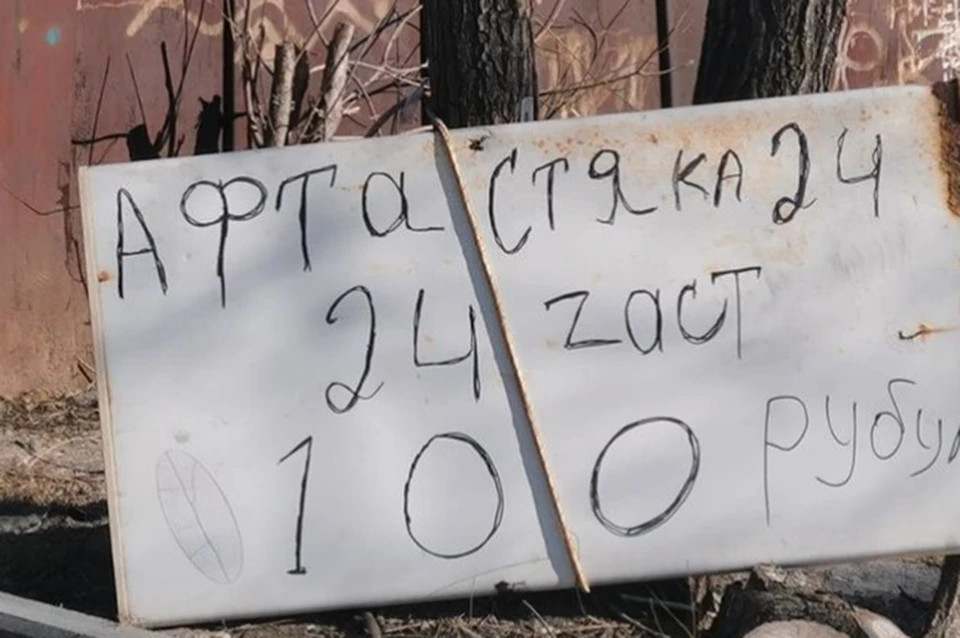 АФТа СТЯКА 24
24 zаст
100